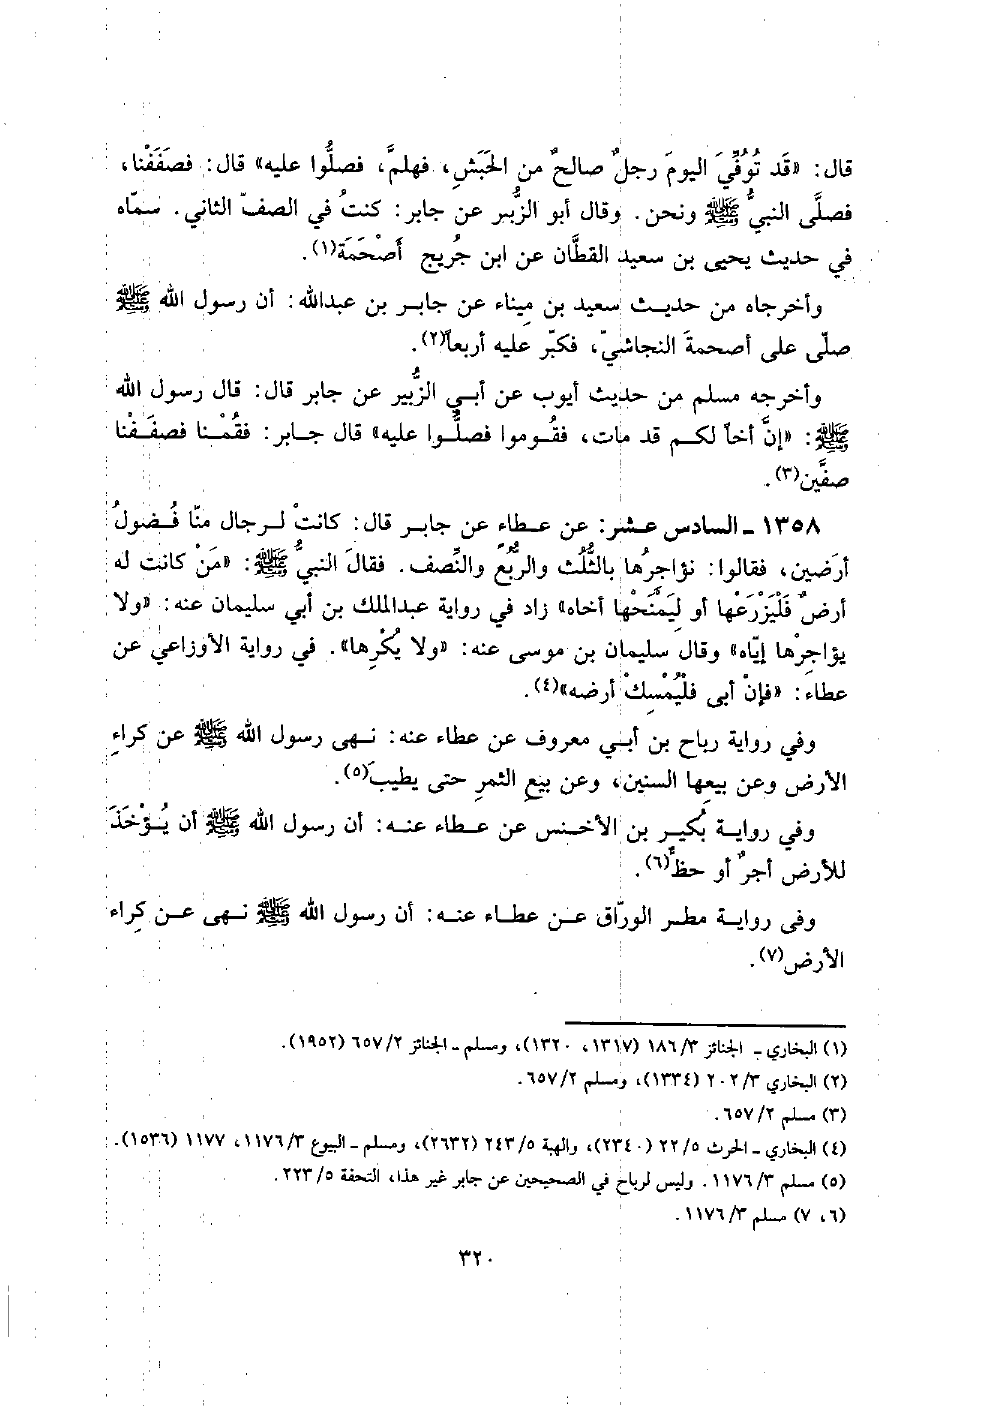 قال: «قَد تُوُفِّيَ اليومَ رجلٌ صالحٌ من الحَبَشِ، فهلمَّ، فصلُّوا عليه» قال: فصَفَفْنا،
فصلَّى النبيُّ ﷺ ونحن. وقال أبو الزُّبير عن جابر: كنتُ في الصفّ الثاني. سمّاه
في حديث يحيى بن سعيد القطَّان عن ابن جُريج أَصْحَمَة(١).
وأخرجاه من حديث سعيد بن مِيناء عن جابر بن عبدالله: أن رسول الله ﷺ
صلّى على أصحمةَ النجاشيّ، فكبّر عليه أربعاً(٢).
وأخرجه مسلم من حديث أيوب عن أبي الزُّبير عن جابر قال: قال رسول الله
ﷺ: «إنَّ أخاً لكم قد مات، فقُوموا فصلُّوا عليه» قال جابر: فقُمْنا فصفَفْنا
صفَّين(٣).
١٣٥٨ ـ السادس عشر: عن عطاء عن جابر قال: كانتْ لرجال منّا فُضولُ
أرَضين، فقالوا: نؤاجِرُها بالثُّلُث والرُّبُع والنِّصف. فقالَ النبيُّ ﷺ: «مَنْ كانت له
أرضٌ فَلْيَزْرَعْها أو لِيَمْنَحْها أخاه» زاد في رواية عبدالملك بن أبي سليمان عنه: «ولا
يؤاجِرْها إيّاه» وقال سليمان بن موسى عنه: «ولا يُكْرِها». في رواية الأوزاعي عن
عطاء: «فإنْ أبى فلْيُمْسِكْ أرضه»(٤).
وفي رواية رباح بن أبي معروف عن عطاء عنه: نهى رسول الله ﷺ عن كراءِ
الأرض وعن بيعِها السنين، وعن بيعِ الثمرِ حتى يطيبَ(٥).
وفي رواية بُكير بن الأخنس عن عطاء عنه: أن رسول الله ﷺ أن يُؤْخَذَ
للأرض أجرٌ أو حظٌّ(٦).
وفي رواية مطر الورّاق عن عطاء عنه: أن رسول الله ﷺ نهى عن كِراء
الأرض(٧).
(١) البخاري ـ الجنائز ١٨٦/٣ (١٣١٧، ١٣٢٠)، ومسلم ـ الجنائز ٦٥٧/٢ (١٩٥٢).
(٢) البخاري ٢٠٢/٣ (١٣٣٤)، ومسلم ٦٥٧/٢.
(٣) مسلم ٦٥٧/٢.
(٤) البخاري ـ الحرث ٢٢/٥ (٢٣٤٠)، والهبة ٢٤٣/٥ (٢٦٣٢)، ومسلم ـ البيوع ١١٧٦/٣، ١١٧٧ (١٥٣٦).
(٥) مسلم ١١٧٦/٣. وليس لرباح في الصحيحين عن جابر غير هذا، التحفة ٢٢٣/٥.
(٦، ٧) مسلم ١١٧٦/٣.
٣٢٠